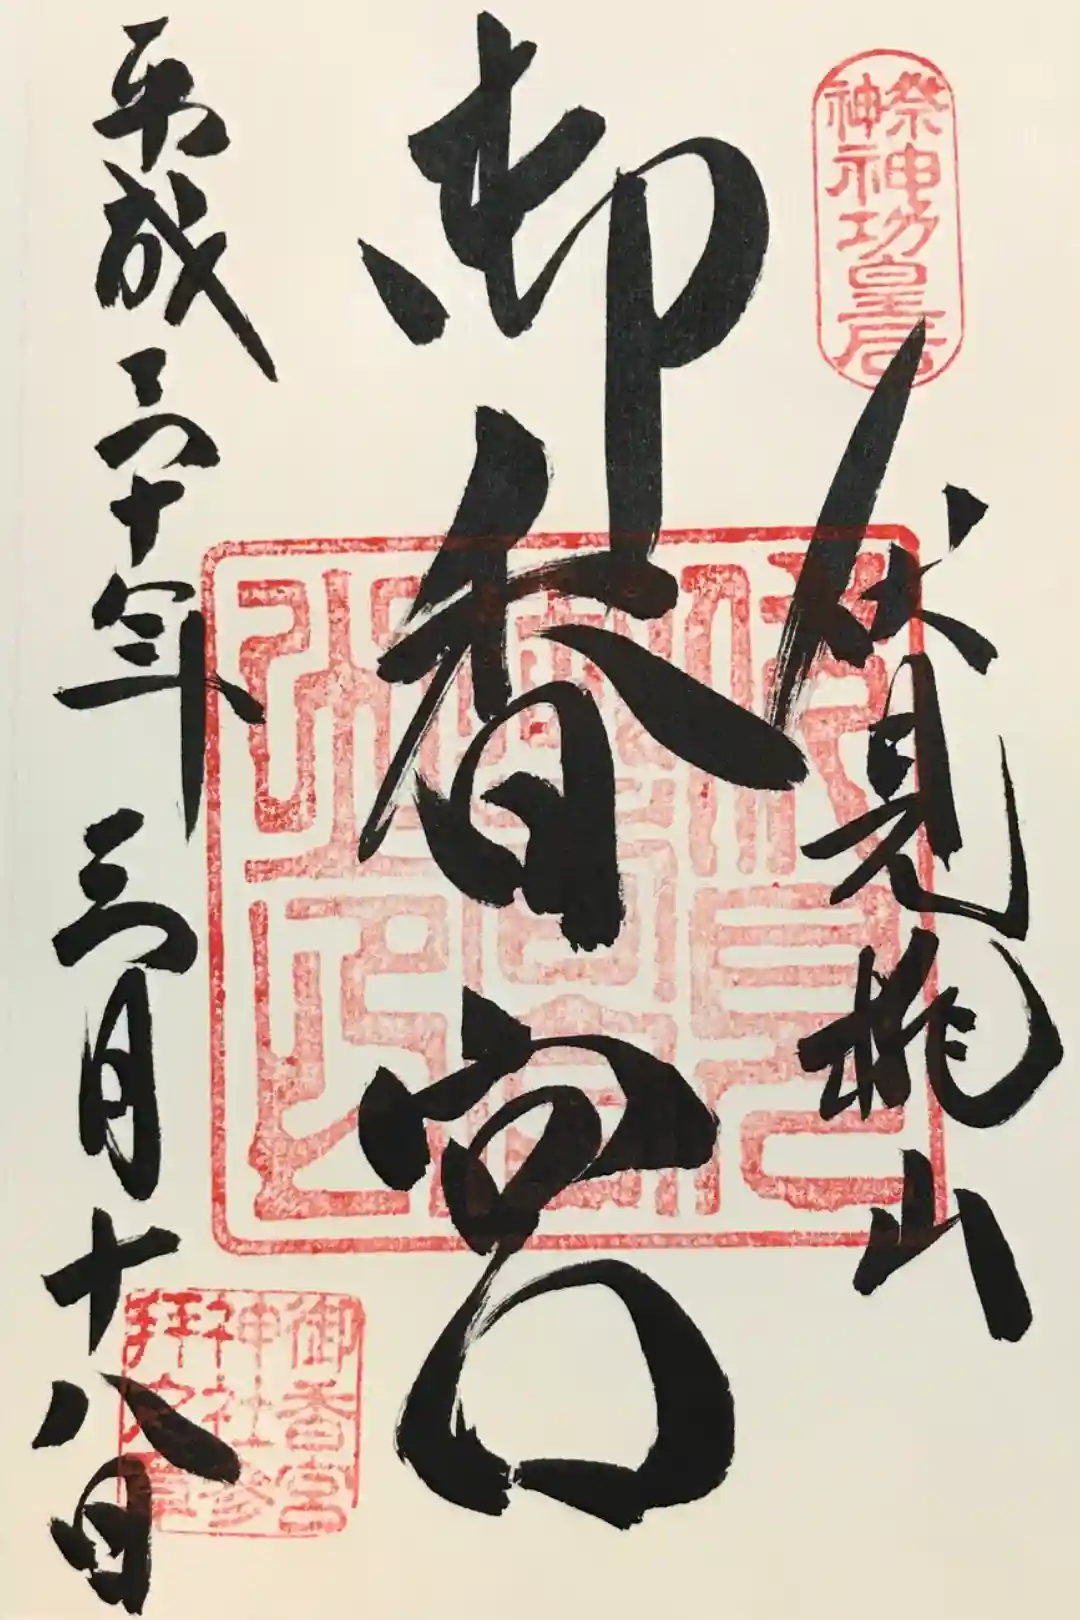 祭神
神功皇后
伏見桃山
御香宮
平成三十年三月十八日
御香宮
神社参
拝之章